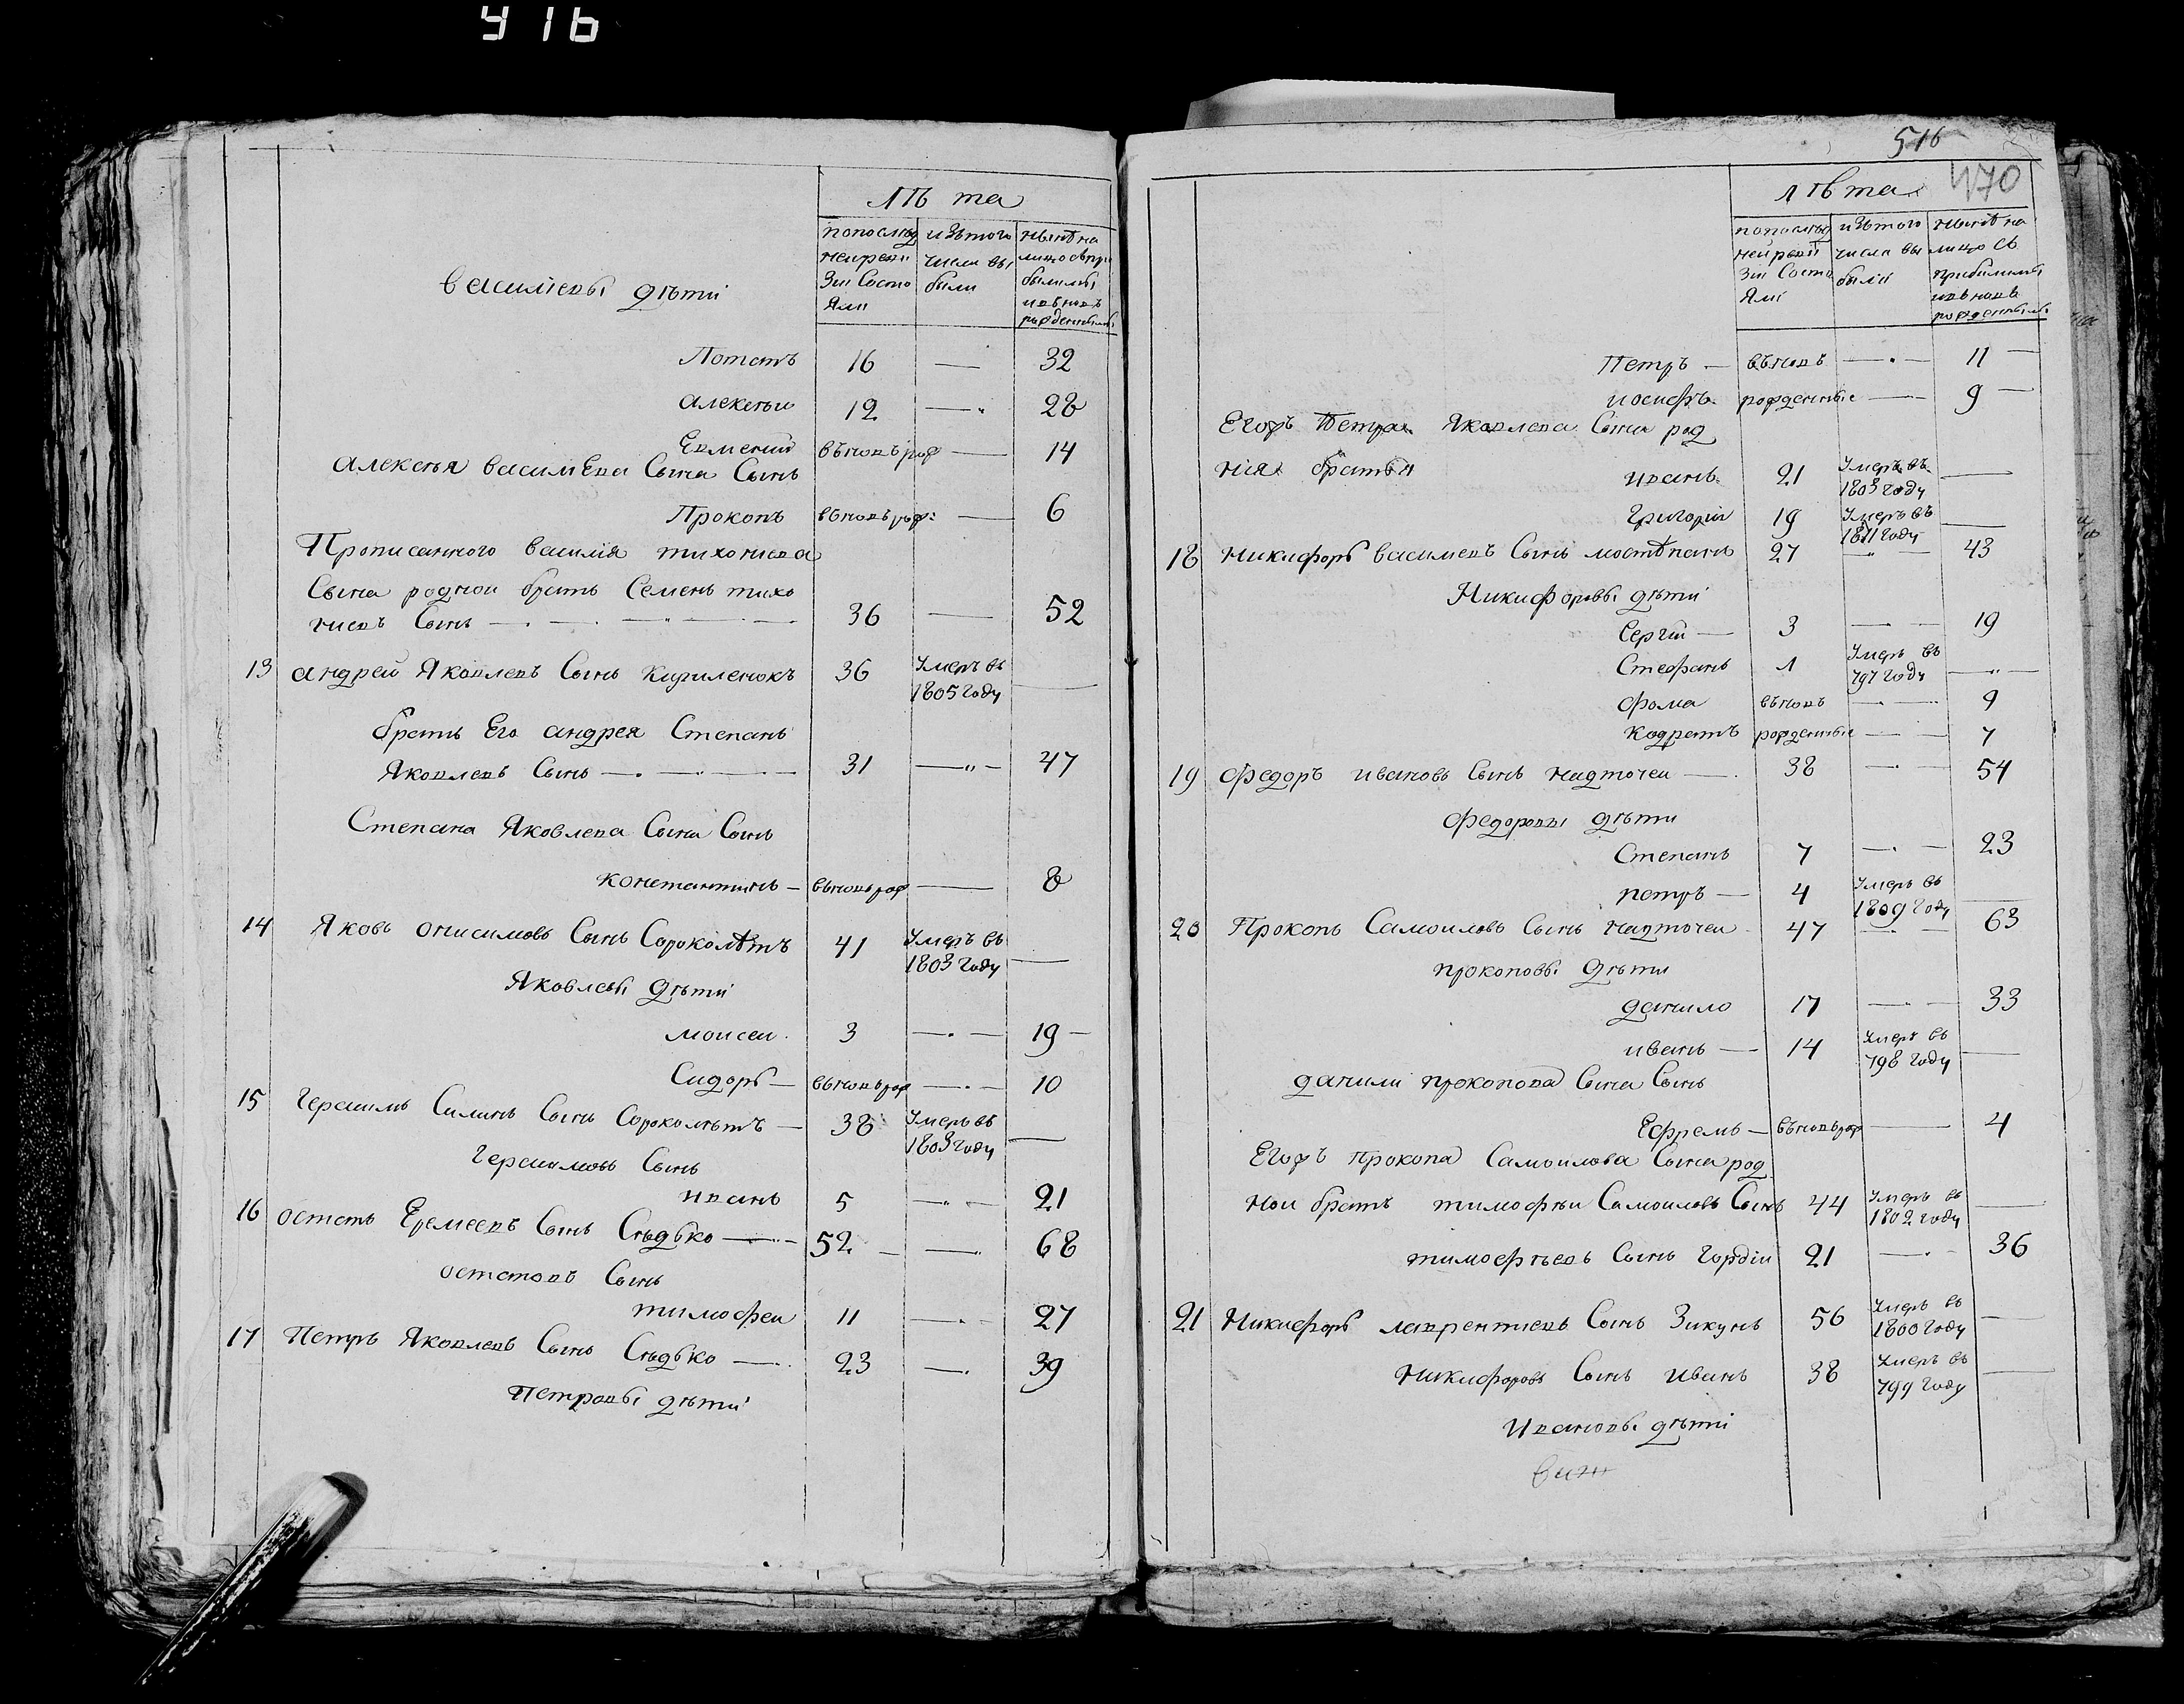 416
лѣта
по послѣд ней ревизіи Состояли
изъ того числа выбыли
нынѣ на лицо съ прибылыми и въ новъ рожденными
василіевы дѣти
Потапъ 16 — 32
алексѣи 12 — 28
Евмений въновь рож — 14
алексѣя василіева Сына Сынъ
Прокопъ въновь рож: — 6
Прописанного василія тихониева
Сына родной братъ Семенъ тихо
ниевъ Сынъ — 36 — 52
13 андрей Яковлевъ Сынъ кириленокъ 36 Умеръ въ 1805 году —
братъ Его андрея Степанъ
Яковлевъ Сынъ — 31 — 47
Степана Яковлева Сына Сынъ
константинъ — въновь рож — 8
14 Яковъ онисимовъ Сынъ Сороколѣтъ 41 Умеръ въ 1803 году —
Яковлевы дѣти
моисеи 3 — 19 —
Сидоръ — въновь рож — 10
15 герасимъ Силинъ Сынъ Сороколѣтъ — 38 Умеръ въ 1803 году —
герасимовъ Сынъ
иванъ 5 — 21
16 остапъ Еремеевъ Сынъ Сѣдько — 52 — 68
остаповъ Сынъ
тимофеи 11 — 27
17 Петръ Яковлевъ Сынъ Сѣдько — 23 — 39
Петровы дѣти
516
470
лѣта
по послѣд ней ревизіи Состояли
изъ того числа выбыли
нынѣ на лицо съ прибылыми и въ новъ рожденными
Петръ — въновъ — 11 —
иосифъ рожденные — 9 —
Егожъ Петра Яковлева Сына род
нія братья иванъ 21 Умеръ въ 1803 году —
григорій 19 Умеръ въ 1811 году —
18 никифоръ василіевъ Сынъ мостѣпанъ 27 — 43
Никифоровы дѣти
Сергій — 3 — 19
Стефанъ 1 Умеръ въ 797 году —
фома въновъ — 9
кодратъ рожденные — 7
19 федоръ ивановъ Сынъ надточеи — 38 — 54
федоровы дѣти
Степанъ 7 — 23
петръ — 4 Умеръ въ 1809 году —
20 Прокопъ Самоиловъ Сынъ надточеи 47 — 63
прокоповы дѣти
данило 17 — 33
иванъ — 14 Умеръ въ 798 году —
данили прокопова Сына Сынъ
Ефремъ — въновь рож — 4
Егожъ прокопа Самоилова Сына род
нои братъ тимофѣи Самоиловъ Сынъ 44 Умеръ въ 1802 году —
тимофѣевъ Сынъ гордіи 21 — 36
21 Никифоръ лаврентиевъ Сынъ Зикунъ 56 Умеръ въ 1800 году —
никифоровъ Сынъ иванъ 38 Умеръ въ 799 году —
Ивановы дѣти